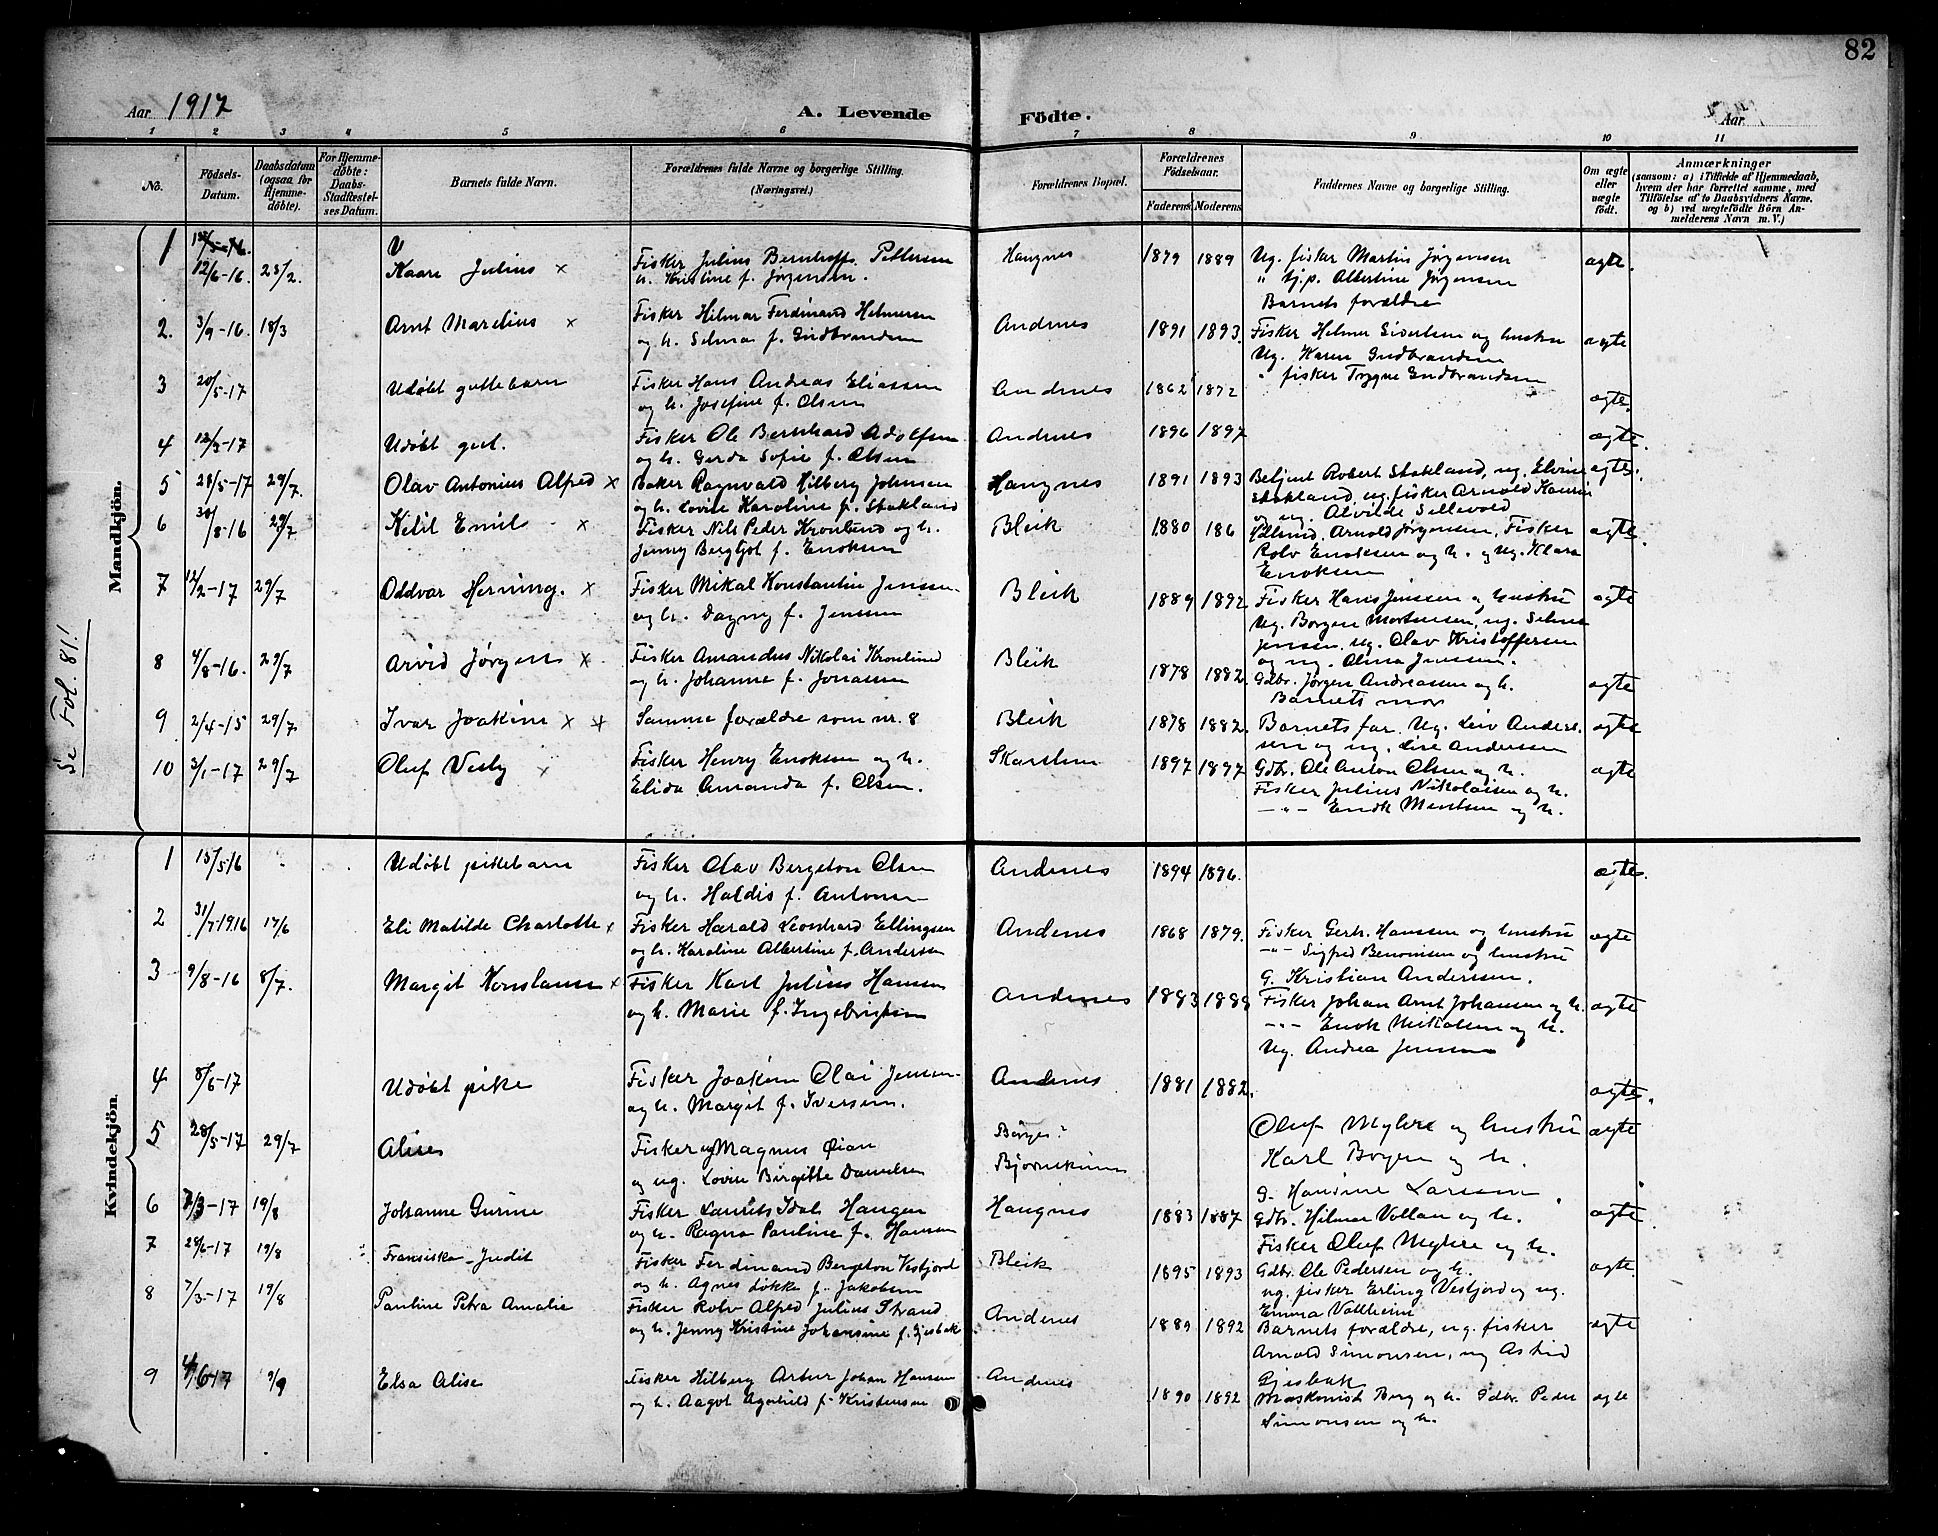 82
Aar 1917
A. Levende
Födte.
Aar
1 2 3 4 5 6 7 8 9 10 11
No.
Födsels-
Datum.
Daabsdatum
(ogsaa for
Hjemme-
döbte).
For Hjemme-
döbte:
Daabs-
Stadfæstel-
ses Datum.
Barnets fulde Navn.
Forældrenes fulde Navne og borgerlige Stilling.
(Næringsvei.)
Forældrenes Bopæl.
Forældrenes
Födselsaar.
Faderens Moderens
Faddernes Navne og borgerlige Stilling.
Om ægte
eller
uægte
födt.
Anmærkninger
(saasom: a) i Tilfælde af Hjemmedaab,
hvem der har forrettet samme, med
Tilföielse af to Daabsvidners Navne,
og b) ved uægtefödte Börn An-
melderens Navn m. V.)
Mandkjön.
Se Fol. 81!
1 12/6-16. 25/2. Kaare Julius x Fisker Julius Bernhoff Pettersen Haugnes 1879 1889 Ug. fisker Martin Jørgensen ægte.
h. Kristine f. Jørgensen. " tj.p. Albertine Jørgensen
Barnets forældre
2. 3/9-16 18/3 Arnt Marelius x Fisker Hilmar Ferdinand Helmersen Andenes 1891 1893. Fisker Helmer Sivertsen og hustru ægte
og h. Selma f. Gudbrandsen Ug. Karen Gudbrandsen
" fisker Trygve Gudbrandsen
3 20/5-17 Udøbt guttebarn Fisker Hans Andreas Eliassen Andenes 1862 1872 ægte.
og h. Josefine f. Olsen
4 12/3-17 Udøbt gut. Fisker Ole Bernhard Adolfsen Andenes 1896 1897 ægte.
og h. Gerda Sofie f. Olsen
5 28/5-17 29/7. Olav Antonius Alfred x Baker Ragnvald Hilberg Johnsen Haugnes 1891 1893 Betjent Robert Stokland, ug. Elvine ægte.
og h. Lovise Karoline f. Stokland Stokland, ug. fisker Arnold Hansen
og ug. Alvilde Sellevold
6 30/8-16 29/7 Ketil Emil x Fisker Nils Peder Kronlund og h. Bleik 1880 186 Arnold Jørgensen, Fisker ægte.
Jenny Bergljot f. Enoksen Rolv Enoksen og h. og ug. Klara
Enoksen
7 12/2-17 29/7 Oddvar Herning. x Fisker Mikal Konstantin Jensen Bleik 1889 1892. Fisker Hans Jenssen og hustru ægte
og h. Dagny f. Jenssen Ug. Borgen Mortensen, ug. Selma
Jenssen, ug. Olav Kristoffersen
og ug. Alma Jenssen.
8 4/8-16. 29/7 Arvid Jørgen x. Fisker Amandus Nikolai Kronlund Bleik 1878 1882. Gdbr. Jørgen Andreassen og h. ægte
og h. Johanne f. Jonassen Barnets mor
9 2/4-15 29/7 Ivar Joakim x x Samme forældre som nr. 8 Bleik 1878 1882. Barnets far. Ug. Leiv Ander- ægte
sen og ug. Lise Andersen
10 3/1-17 29/7 Oluf Vesby x Fisker Henry Enoksen og h. Skarstein 1897 1897 Gdbr. Ole Anton Olsen og h. ægte
Elida Amanda f. Olsen. Fisker Julius Nikolaisen og h.
-"- Enok Mentsen og h.
Kvindekjön.
1 15/5 16 Udøbt pikebarn Fisker Olav Bergeton Olsen Andenes 1894 1896. ægte.
og h. Haldis f. Antonsen
2 31/7-1916 17/6 Eli Matilde Charlotte x Fisker Harald Leonhard Ellingsen Andenes 1868 1879. Fisker Gerh. Hanssen og hustru ægte
og h. Karoline Albertine f. Andersen -"- Sigfred Benonisen og hustru
G. Kristian Andersen.
3 9/8-16 8/7. Margit Konstanse x Fisker Karl Julius Hansen Andenes 1883 1888 Fisker Johan Arnt Johansen og h. ægte
og h. Marie f. Ingebrigtsen -"- Enok Nikolaisen og h.
Ug. Andrea Jenssen
4 8/6-17 Udøbt pike Fisker Joakim Olai Jensen Andenes 1881 1882. ægte.
og h. Margit f. Iversen.
5 28/5-17 29/7 Alise Fisker ug Magnus Øian Børges? Oluf Myhre og hustru ægte
og ug. Lovise Birgitte Danielsen Bjørnskinn Karl Bogen og h.
G. Hansine Larsen.
6 2/3-17 19/8 Johanne Gurine Fisker Laurits Idal Haugen Haugnes 1883 1887 Gdbr. Hilmar Vollan og h. ægte
og h. Ragna Pauline f. Hansen Fisker Oluf Myhre og h.
7 28/6-17 19/8 Fransiska Judit Fisker Ferdinand Bergeton Vestjord Bleik 1895 1893 Gdbr. Ole Pedersen og h. ægte.
og h. Agnes Løkke f. Jakobsen ug. fisker Erling Vestjord og ug.
Emma Vollheim
8 7/3-17 19/8 Pauline Petra Amalie Fisker Rolv Alfred Julius Strand Andenes 1889 1892 Barnets forældre, ug. fisker ægte
og h. Jenny Kristine Johansine f. Gjesbak Arnold Simonsen, ug Astrid
Gjesbak
9 4/6-17 9/9 Elsa Alise Fisker Hilberg Artur Johan Hansen Andenes 1890 1892 Maskinist Berg og h. Gdbr. Peder ægte
og h. Aagot Agnhild f. Kristensen Simonsen og h.